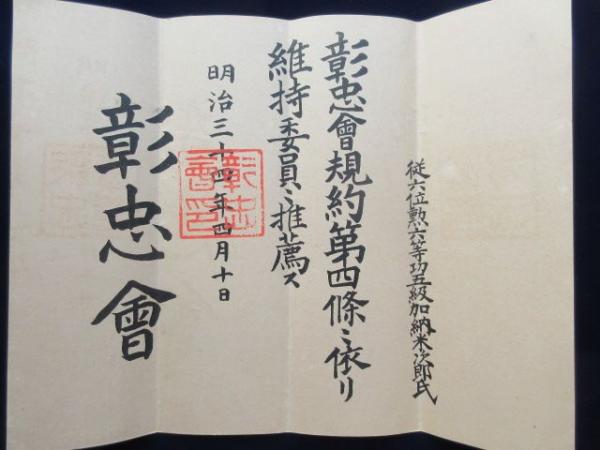 従六位勲六等功五級加納米次郎氏
彰忠會規約第四條ニ依リ
維持委員ニ推薦ス
明治三十四年四月十日
彰忠會
彰忠會印